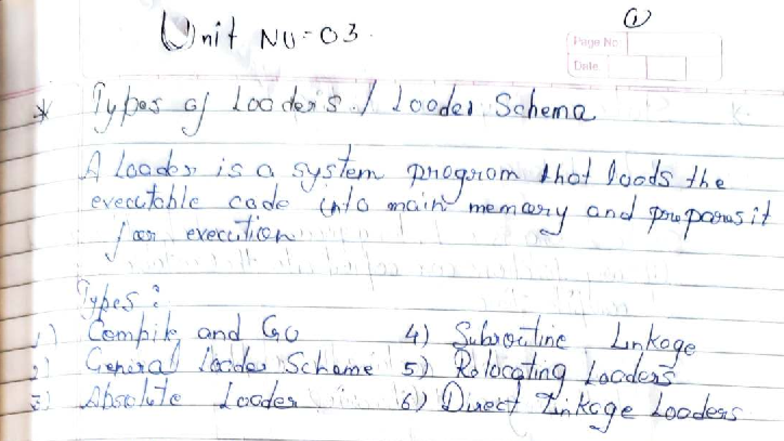 1
Unit No-03.
Page No.
Date
* Types of Loader's / Loader Schema
A Loader is a system program that loads the
executable code into main memory and prepares it
for execution
Types :
1) Compile and Go 4) Subroutine Linkage
2) General Loader Scheme 5) Relocating Loaders
3) Absolute Loader 6) Direct Linkage Loaders